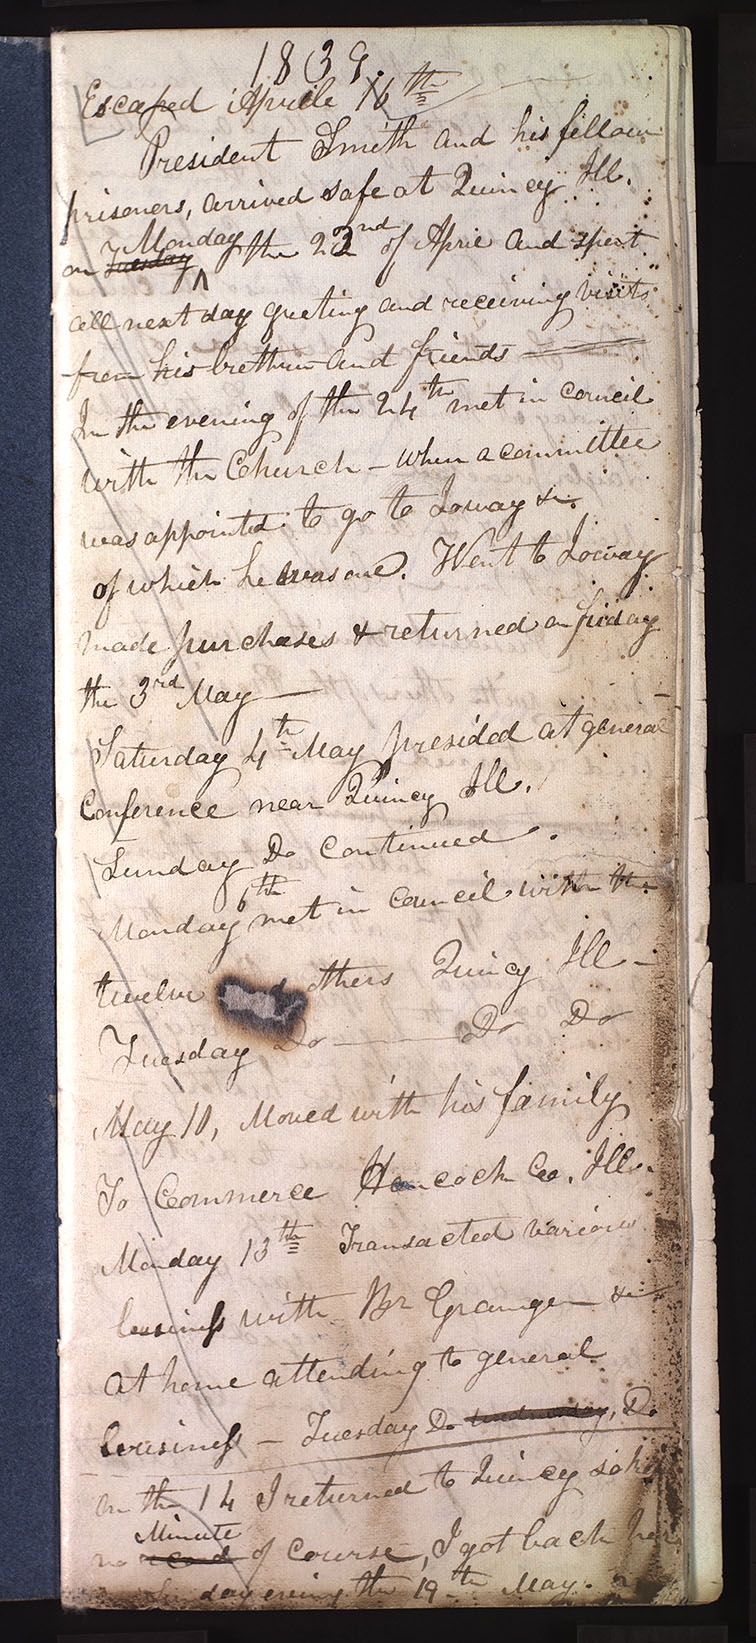 1839.
Escaped Aprile 16th
President Smith and his fellow
prisoners, arrived safe at Quincy Ill.
Monday
on Tuesday the 22nd of April and spent
all next day greeting and receiving visits
from his brethren and friends
In the evening of the 24th met in council
with the Church - when a committee
was appointed to go to Ioway &c.
of which he was one. Went to Ioway
made purchases & returned on friday
the 3rd May
Saturday 4th May presided at general
Conference near Quincy Ill.
Sunday Do continued.
Monday 6th met in Council with the
twelve others Quincy Ill -
Tuesday Do Do Do
May 10, Moved with his family
To Commerce Hancock Co. Ill.
Monday 13th Transacted various
business with Br Granger &c
at home attending to general
business - Tuesday Do wednesday, Do
on the 14 I returned to Quincy so kept
Minute
no record of course, I got back here
day evening the 19th May.